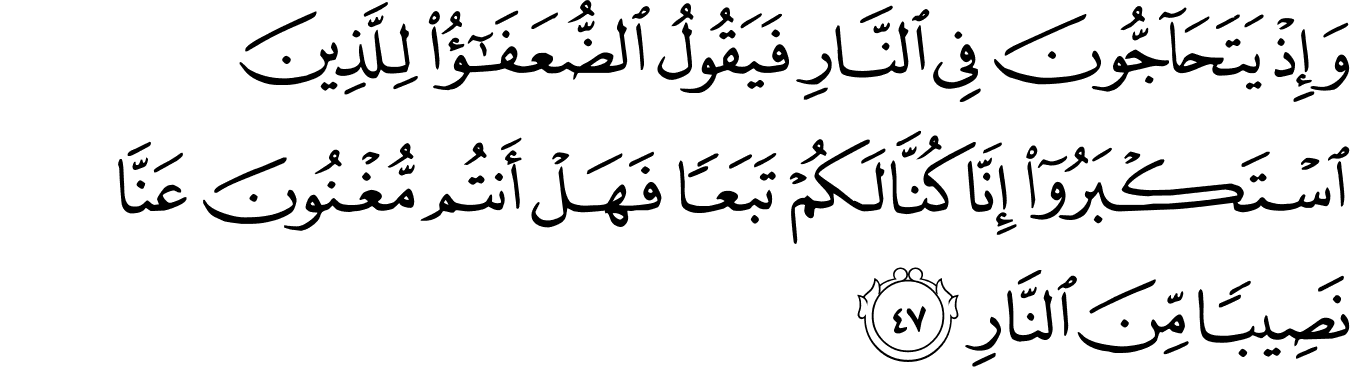 وَإِذْ يَتَحَآجُّونَ فِى ٱلنَّارِ فَيَقُولُ ٱلضُّعَفَـٰٓؤُا۟ لِلَّذِينَ
ٱسْتَكْبَرُوٓا۟ إِنَّا كُنَّا لَكُمْ تَبَعًا فَهَلْ أَنتُم مُّغْنُونَ عَنَّا
نَصِيبًا مِّنَ ٱلنَّارِ ٤٧